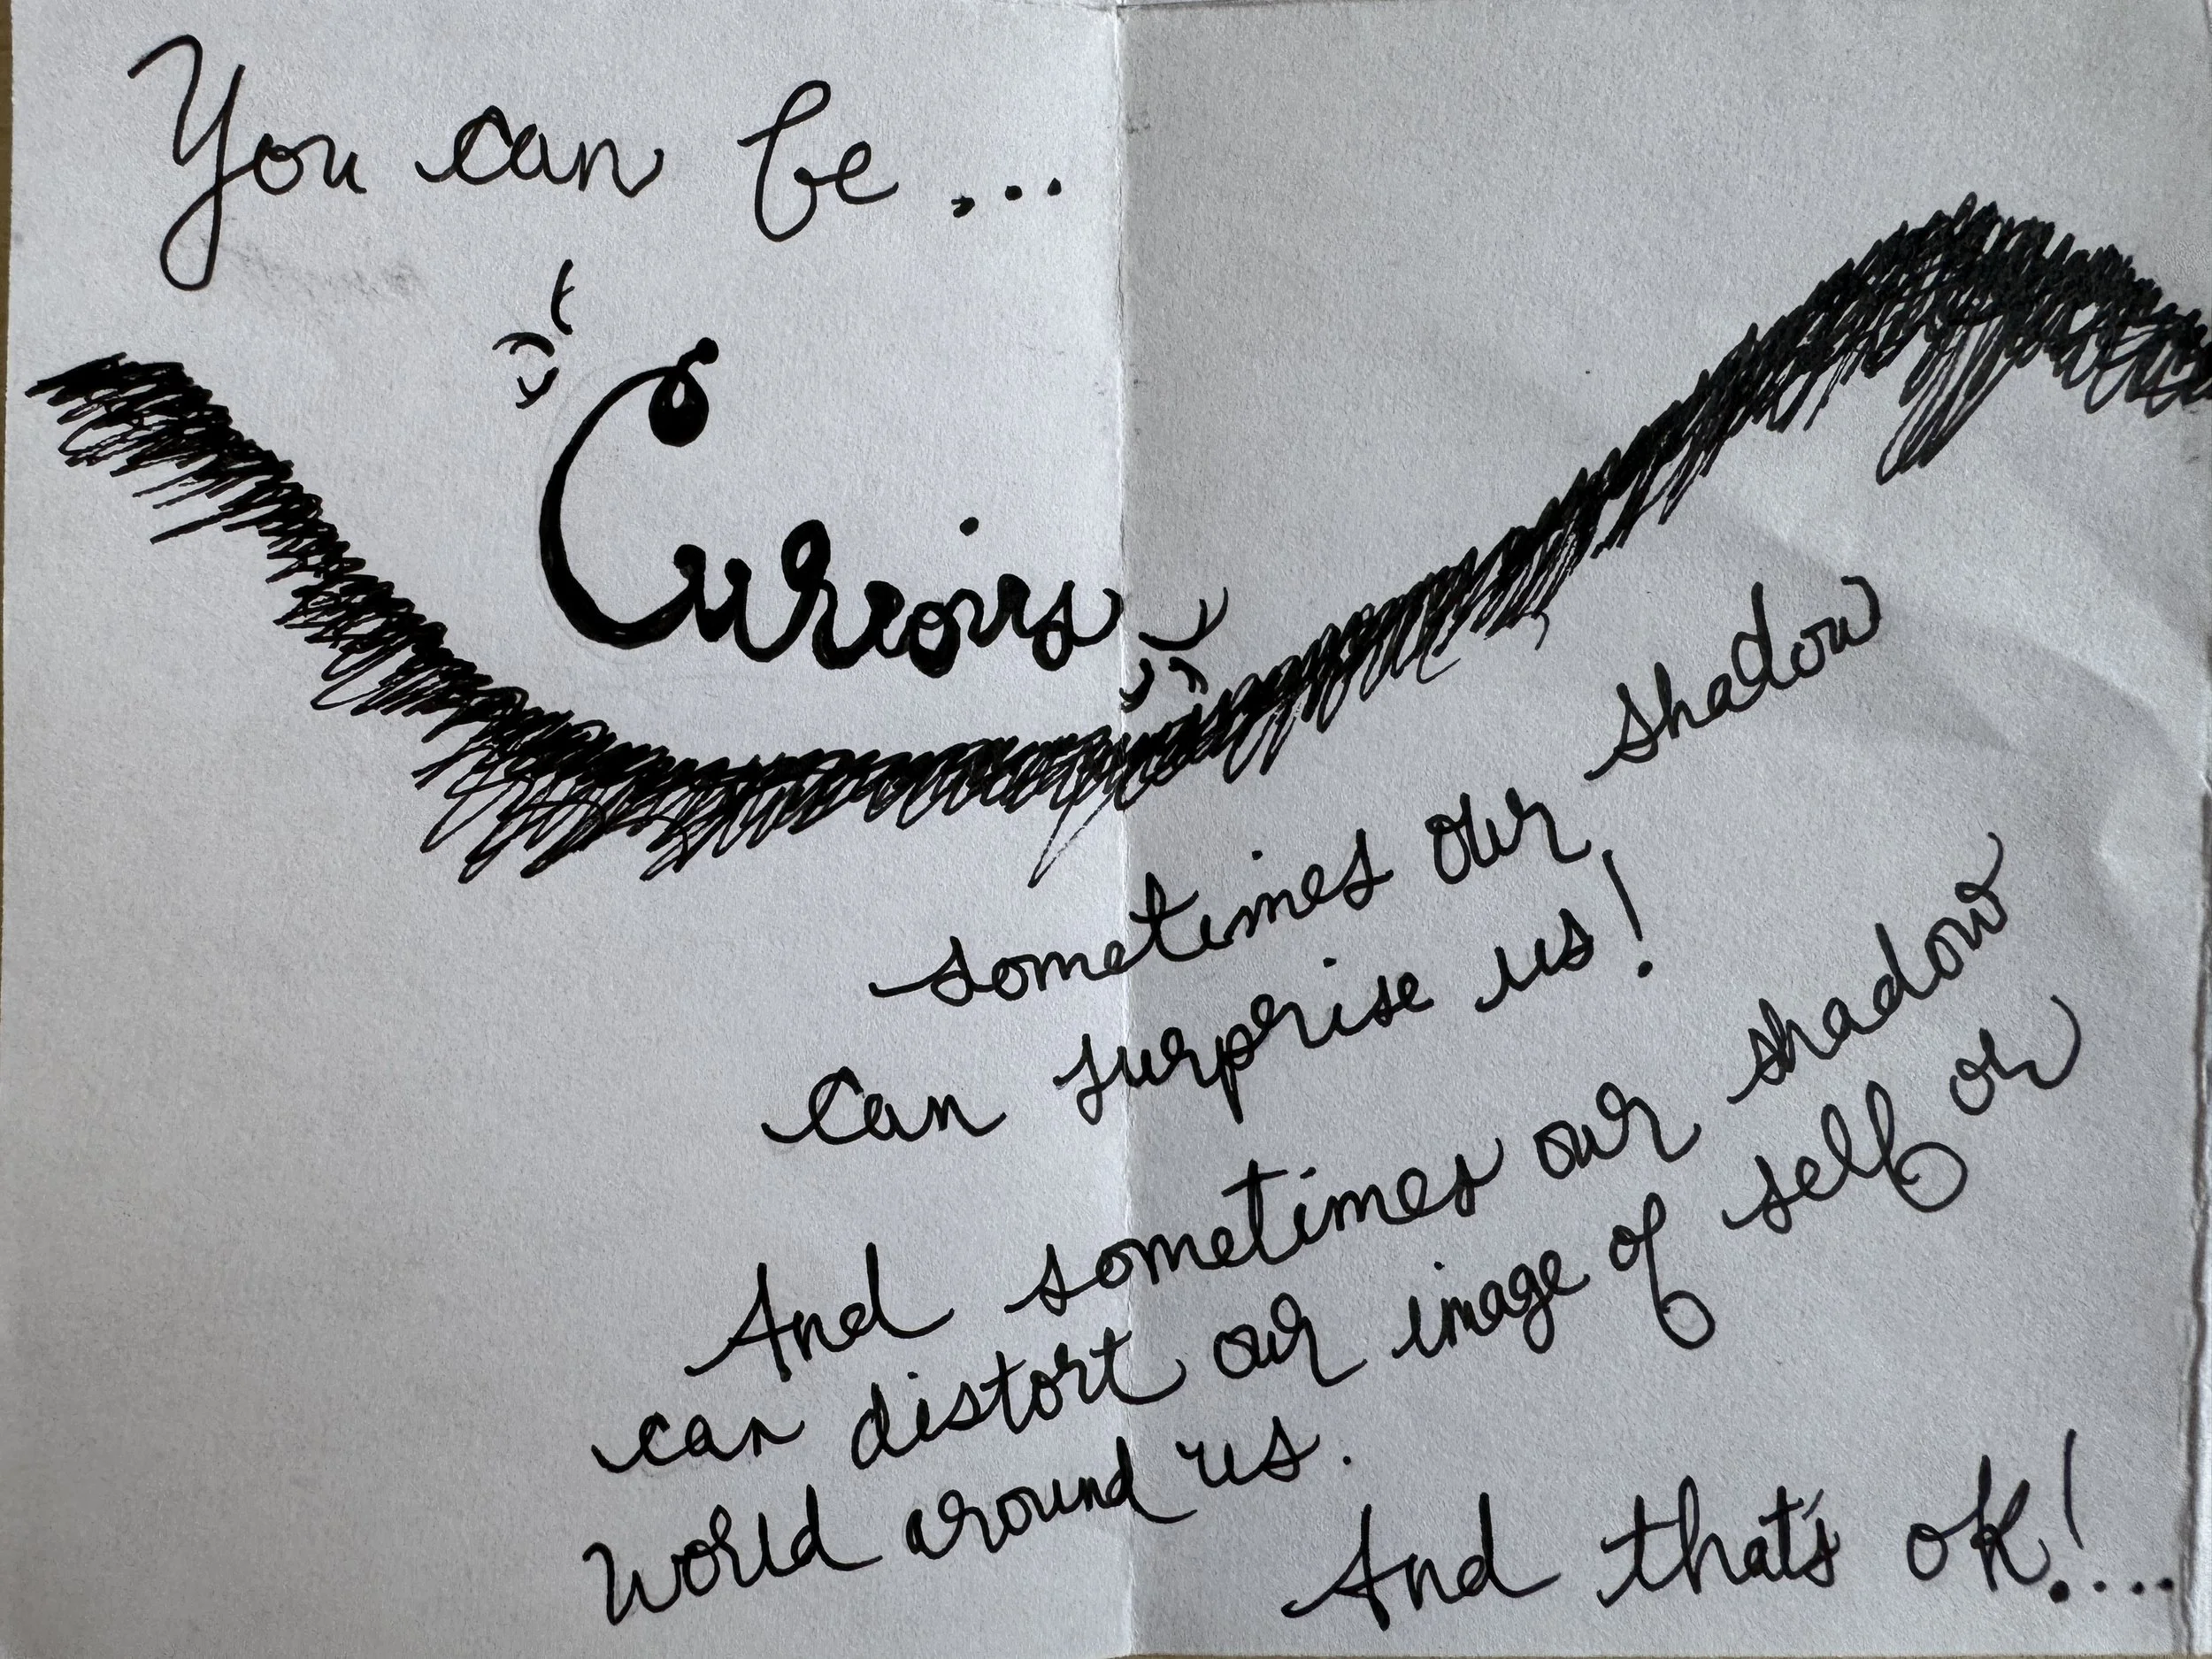 You can be...
Curious
sometimes our shadow
can surprise us!
And sometimes our shadow
can distort our image of self or
world around us.
And that's ok!....